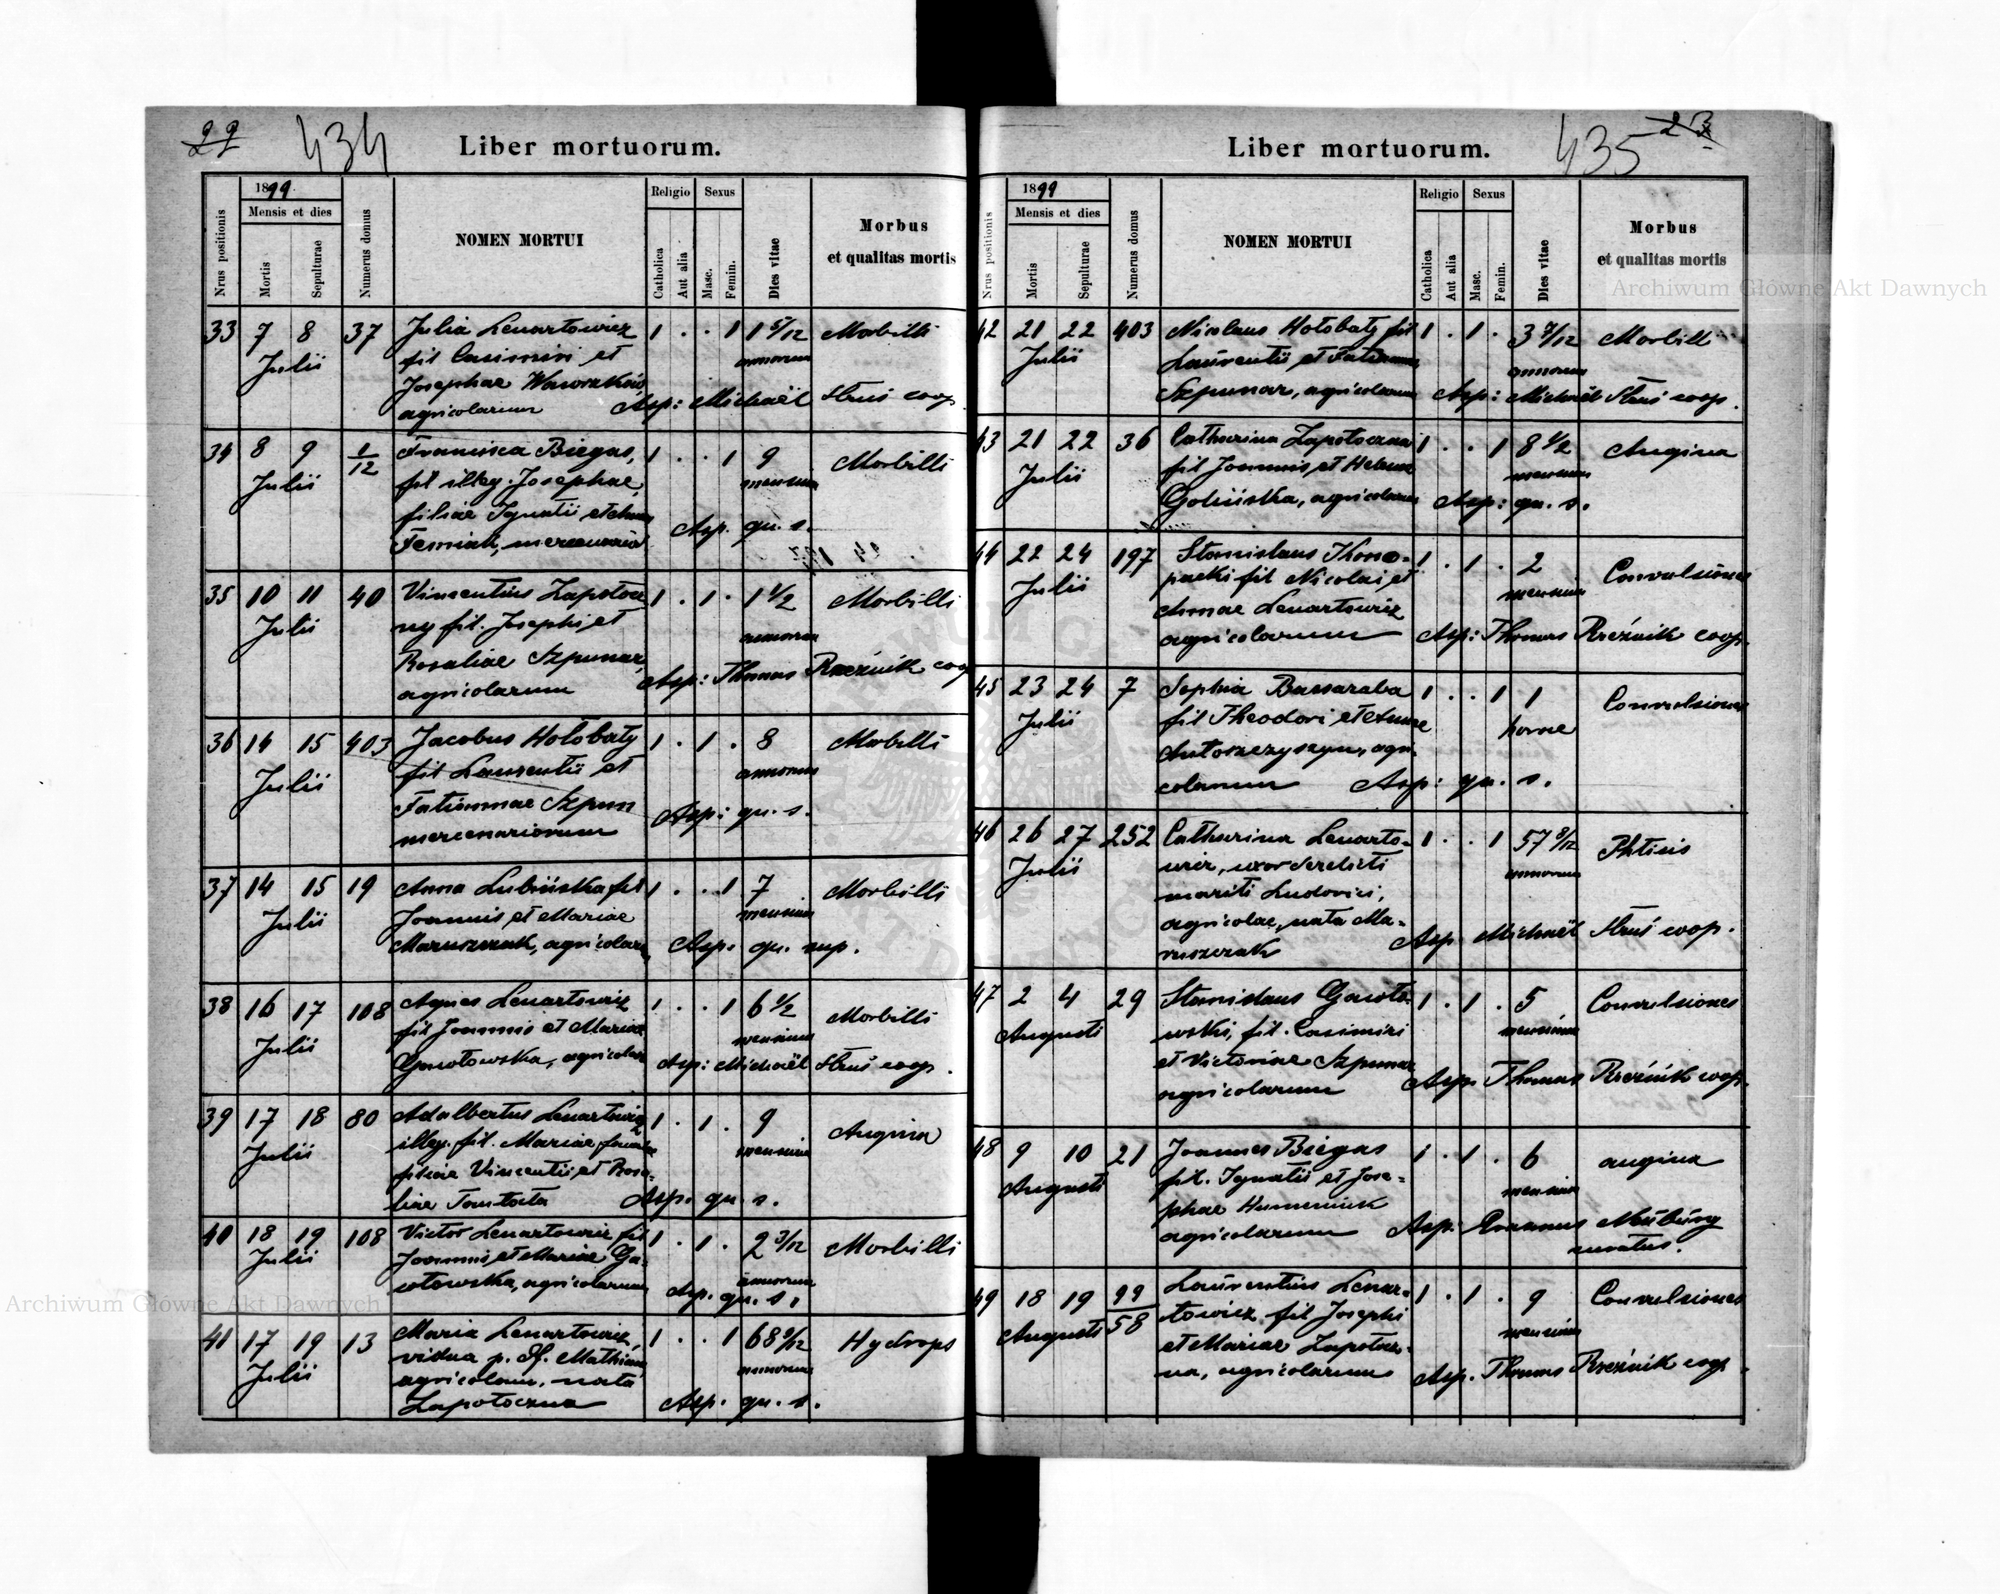 434
Liber mortuorum.
1899
Mensis et dies
Nrus positionis
Mortis
Sepulturae
Numerus domus
NOMEN MORTUI
Religio
Sexus
Catholica
Aut alia
Masc.
Femin.
Dies vitae
Morbus
et qualitas mortis
33 7 8 37 Julia Lenartowicz 1 . . 1 1 5/12 Morbilli
Julii fil Casimiri et annorum
Josephae
agricolarum Asp: Michaël Struś coop.
34 8 9 1/12 Francisca Biegas, 1 . . 1 9 Morbilli
Julii fil illeg. Josephae, mensium
filiae Ignatii et Annae
Asp. qu. s.
35 10 11 40 Vincentius Zapotocz 1 . 1 . 1 1/2 Morbilli
Julii ny fil. Josephi et annorum
Rosaliae Szpunar,
agricolarum Asp: Thomas Rzeźnik coop
36 14 15 403 Jacobus Hołobaty 1 . 1 . 8 Morbilli
Julii fil Laurentii et annorum
Tatiannae Szpun
mercenariorum Asp: qu. s.
37 14 15 19 Anna Lubińska fil 1 . . 1 7 Morbilli
Julii Joannis et Mariae mensium
Maruszczak, agricolarum Asp. qu. sup.
38 16 17 108 Agnes Lenartowicz 1 . . 1 6 1/2 Morbilli
Julii fil Joannis et Mariae mensium
Gawotowska, agricolarum Asp: Michaël Struś coop.
39 17 18 80 Adalbertus Lenartowicz 1 . 1 . 9 Angina
Julii illeg. fil. Mariae, mensium
filiae Vincentii et Rosa-
liae Asp. qu. s.
40 18 19 108 Victor Lenartowicz fil 1 . 1 . 2 3/12 Morbilli
Julii Joannis et Mariae Ga- annorum
wotowska, agricolarum Asp. qu. s.
41 17 19 13 Maria Lenartowicz, 1 . . 1 68 9/12 Hydrops
Julii vidua p. df. Mathiam annorum
agricolam, nata
Zapotoczna Asp. qu. s.
435
Liber mortuorum.
1899
Mensis et dies
Nrus positionis
Mortis
Sepulturae
Numerus domus
NOMEN MORTUI
Religio
Sexus
Catholica
Aut alia
Masc.
Femin.
Dies vitae
Morbus
et qualitas mortis
42 21 22 403 Nicolaus Hołobaty fil 1 . 1 . 3 7/12 Morbilli
Julii Laurentii et Tatiannae annorum
Szpunar, agricolarum Asp: Michaël Struś coop.
43 21 22 36 Catharina Zapotoczna 1 . . 1 8 1/2 Angina
Julii fil Joannis et Helenae mensium
Golińska, agricolarum Asp: qu. s.
44 22 24 197 Stanislaus Kono- 1 . 1 . 2 Convulsiones
Julii packi fil Nicolai et mensium
Annae Lenartowicz
agricolarum Asp: Thomas Rzeźnik coop.
45 23 24 7 Sophia Bassaraba 1 . . 1 1 Convulsiones
Julii fil Theodori et Annae horae
Antoszczyszyn, agri-
colarum Asp: qu. s.
46 26 27 252 Catharina Lenarto- 1 . . 1 57 8/12 Phtisis
Julii wicz, uxor derelicti annorum
mariti Ludovici,
agricolae, nata Ma-
ruszczak Asp. Michaël Struś coop.
47 2 4 29 Stanislaus Gawoto- 1 . 1 . 5 Convulsiones
Augusti wski, fil. Casimiri mensium
et Victoriae Szpunar
agricolarum Asp. Thomas Rzeźnik coop.
48 9 10 21 Joannes Biegas 1 . 1 . 6 angina
Augusti fil. Ignatii et Jose- mensium
phae Humeniuk
agricolarum Asp. Erasmus
curatus.
49 18 19 99/58 Laurentius Lenar- 1 . 1 . 9 Convulsiones
Augusti towicz fil Josephi mensium
et Mariae Zapotocz-
na, agricolarum Asp. Thomas Rzeźnik coop.
Archiwum Główne Akt Dawnych
Archiwum Główne Akt Dawnych